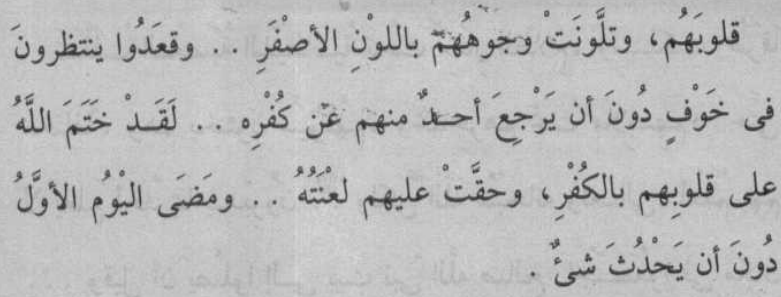 قلوبَهُم، وتلَّونَتْ وجوهُهُمْ باللوْنِ الأصْفَرِ . . وقعَدُوا ينتظرونَ
فى خَوْفٍ دُونَ أن يَرْجِعَ أحدٌ منهم عَن كُفْرِه . . لَقَدْ خَتَمَ اللَّهُ
على قلوبِهم بالكُفْرِ، وحقَّتْ عليهم لعْنَتُهُ . . ومَضَى اليْومُ الأوَّلُ
دُونَ أن يَحْدُثَ شىءٌ .